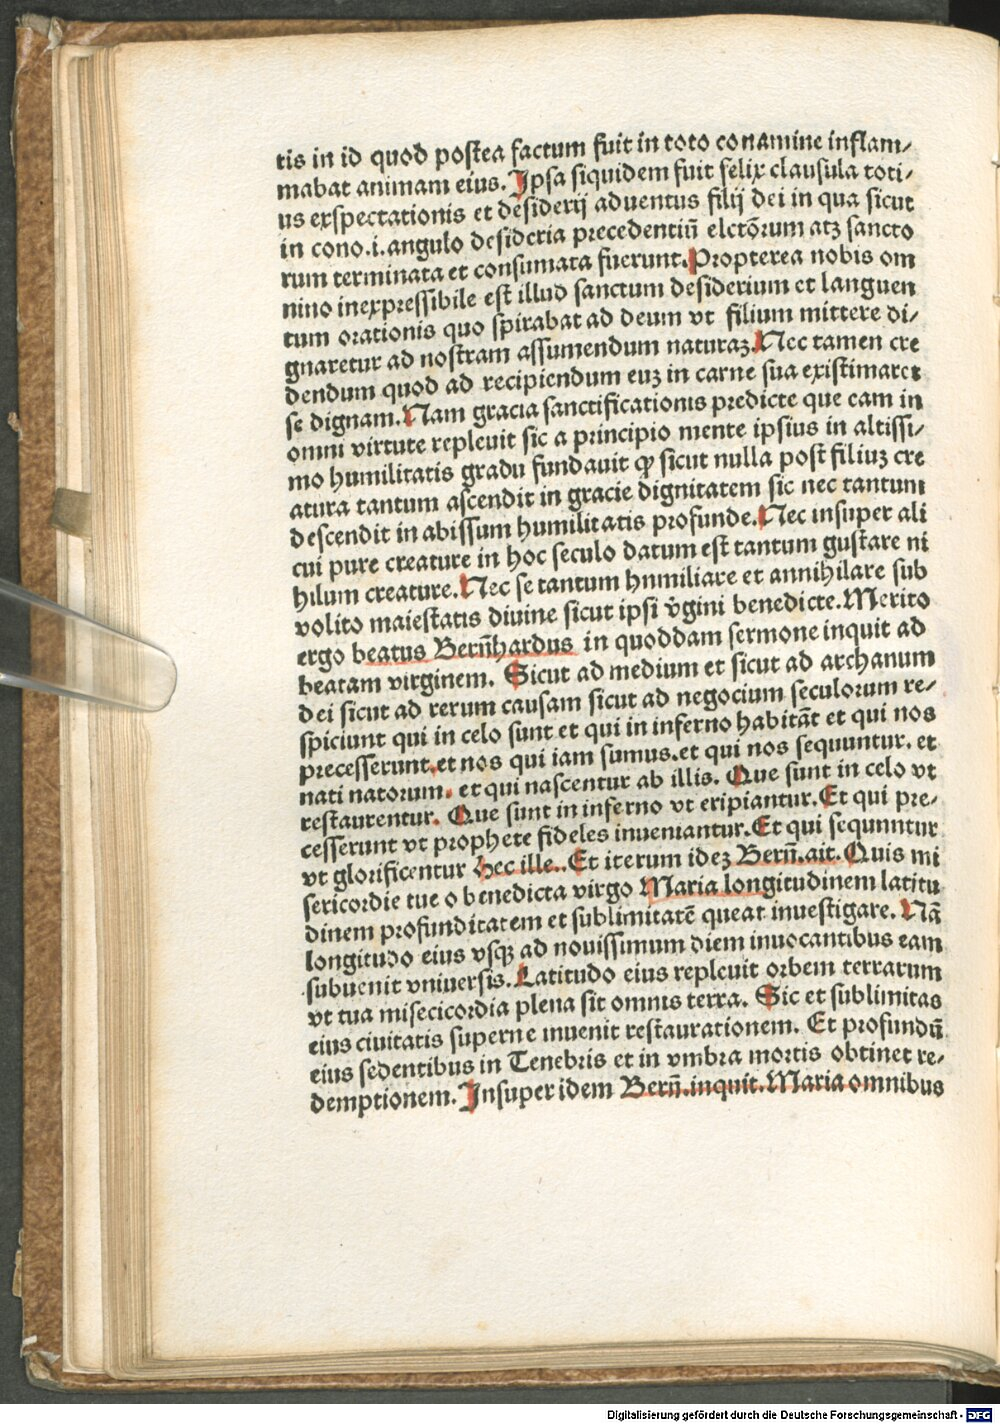 tis in id quod postea factum fuit in toto conamine inflam⸗
mabat animam eius. Ipsa siquidem fuit felix clausula toti⸗
us exspectationis et desiderij aduentus filij dei in qua sicut
in cono .i. angulo desideria precedentiū elctōrum atꝫ sancto
rum terminata et consumata fuerunt. Propterea nobis om
nino inexpressibile est illud sanctum desiderium et languen
tum orationis quo spirabat ad deum vt filium mittere di⸗
gnaretur ad nostram assumendum naturaꝫ. Nec tamen cre
dendum quod ad recipiendum euꝫ in carne sua existimaret
se dignam. Nam gracia sanctificationis predicte que eam in
omni virtute repleuit sic a principio mente ipsius in altissi⸗
mo humilitatis gradu fundauit ꝙ sicut nulla post filiuꝫ cre
atura tantum ascendit in gracie dignitatem sic nec tantum
descendit in abissum humilitatis profunde. Nec insuper ali
cui pure creature in hoc seculo datum est tantum gustare ni
hilum creature. Nec se tantum hnmiliare et annihilare sub
volito maiestatis diuine sicut ipsi v̄gini benedicte. Merito
ergo beatus Bern̄hardus in quoddam sermone inquit ad
beatam virginem. Sicut ad medium et sicut ad archanum
dei sicut ad rerum causam sicut ad negocium seculorum re⸗
spiciunt qui in celo sunt et qui in inferno habitāt et qui nos
precesserunt. et nos qui iam sumus. et qui nos sequuntur. et
nati natorum. et qui nascentur ab illis. Que sunt in celo vt
restaurentur. Que sunt in inferno vt eripiantur. Et qui pre⸗
cesserunt vt prophete fideles inueniantur. Et qui sequnntur
vt glorificentur hec ille.. Et iterum ideꝫ Bern̄. ait. Quis mi
sericordie tue o benedicta virgo Maria longitudinem latitu
dinem profunditatem et sublimitatē queat inuestigare. Nā
longitudo eius vsqꝫ ad nouissimum diem inuocantibus eam
subuenit vniuersis. Latitudo eius repleuit orbem terrarum
vt tua misecicordia plena sit omnis terra. Sic et sublimitas
eius ciuitatis superne inuenit restaurationem. Et profundū
eius sedentibus in Tenebris et in vmbra mortis obtinet re⸗
demptionem. Insuper idem Bern̄. inquit. Maria omnibus
Digitalisierung gefördert durch die Deutsche Forschungsgemeinschaft - DFG